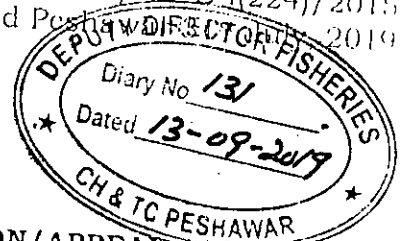 (224)/2015
2019
DEPUTY DIRECTOR FISHERIES
Diary No 131
Dated 13-09-2019
CH & TC PESHAWAR